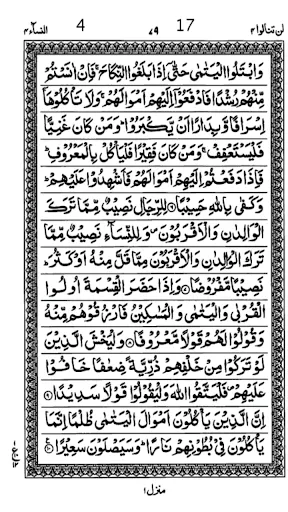 لن تنالوا ۴ 17 ۷۹ 4 النسآء ۴
وَابْتَلُوا الْيَتٰمٰى حَتّٰۤى اِذَا بَلَغُوا النِّكَاحَ ۚ فَاِنْ اٰنَسْتُمْ
مِّنْهُمْ رُشْدًا فَادْفَعُوْۤا اِلَيْهِمْ اَمْوَالَهُمْ ۚ وَلَا تَاْكُلُوْهَاۤ
اِسْرَافًا وَّبِدَارًا اَنْ يَّكْبَرُوْا ؕ وَمَنْ كَانَ غَنِيًّا
فَلْيَسْتَعْفِفْ ۚ وَمَنْ كَانَ فَقِيْرًا فَلْيَاْكُلْ بِالْمَعْرُوْفِ ؕ
فَاِذَا دَفَعْتُمْ اِلَيْهِمْ اَمْوَالَهُمْ فَاَشْهِدُوْا عَلَيْهِمْ ؕ
وَكَفٰى بِاللّٰهِ حَسِيْبًا ۝ لِلرِّجَالِ نَصِيْبٌ مِّمَّا تَرَكَ
الْوَالِدٰنِ وَالْاَقْرَبُوْنَ ۪ وَلِلنِّسَآءِ نَصِيْبٌ مِّمَّا
تَرَكَ الْوَالِدٰنِ وَالْاَقْرَبُوْنَ مِمَّا قَلَّ مِنْهُ اَوْ كَثُرَ ؕ
نَصِيْبًا مَّفْرُوْضًا ۝ وَاِذَا حَضَرَ الْقِسْمَةَ اُولُوا
الْقُرْبٰى وَالْيَتٰمٰى وَالْمَسٰكِيْنُ فَارْزُقُوْهُمْ مِّنْهُ
وَقُوْلُوْا لَهُمْ قَوْلًا مَّعْرُوْفًا ۝ وَلْيَخْشَ الَّذِيْنَ
لَوْ تَرَكُوْا مِنْ خَلْفِهِمْ ذُرِّيَّةً ضِعٰفًا خَافُوْا
عَلَيْهِمْ ۪ فَلْيَتَّقُوا اللّٰهَ وَلْيَقُوْلُوْا قَوْلًا سَدِيْدًا ۝
اِنَّ الَّذِيْنَ يَاْكُلُوْنَ اَمْوَالَ الْيَتٰمٰى ظُلْمًا اِنَّمَا
يَاْكُلُوْنَ فِيْ بُطُوْنِهِمْ نَارًا ؕ وَسَيَصْلَوْنَ سَعِيْرًا ۝
منزل ۱